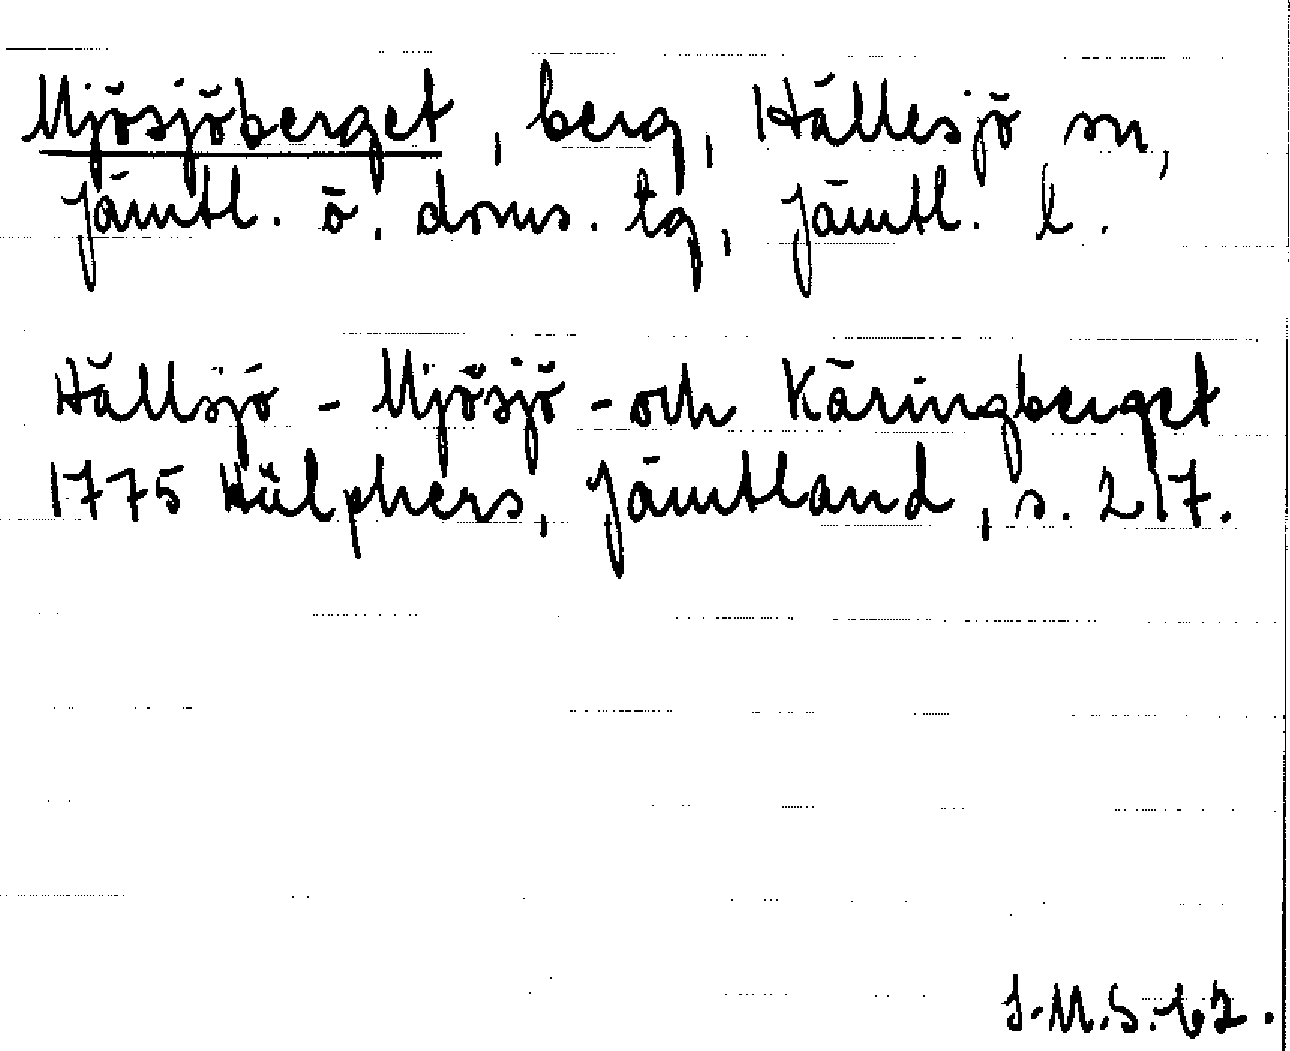 Mjösjöberget, berg, Hällesjö sn,
Jämtl. ö. doms. tg, Jämtl. l.
Hällsjö - Mjösjö - och Käringberget
1775 Hülphers, Jämtland, s. 217.
I.M.S. 62.